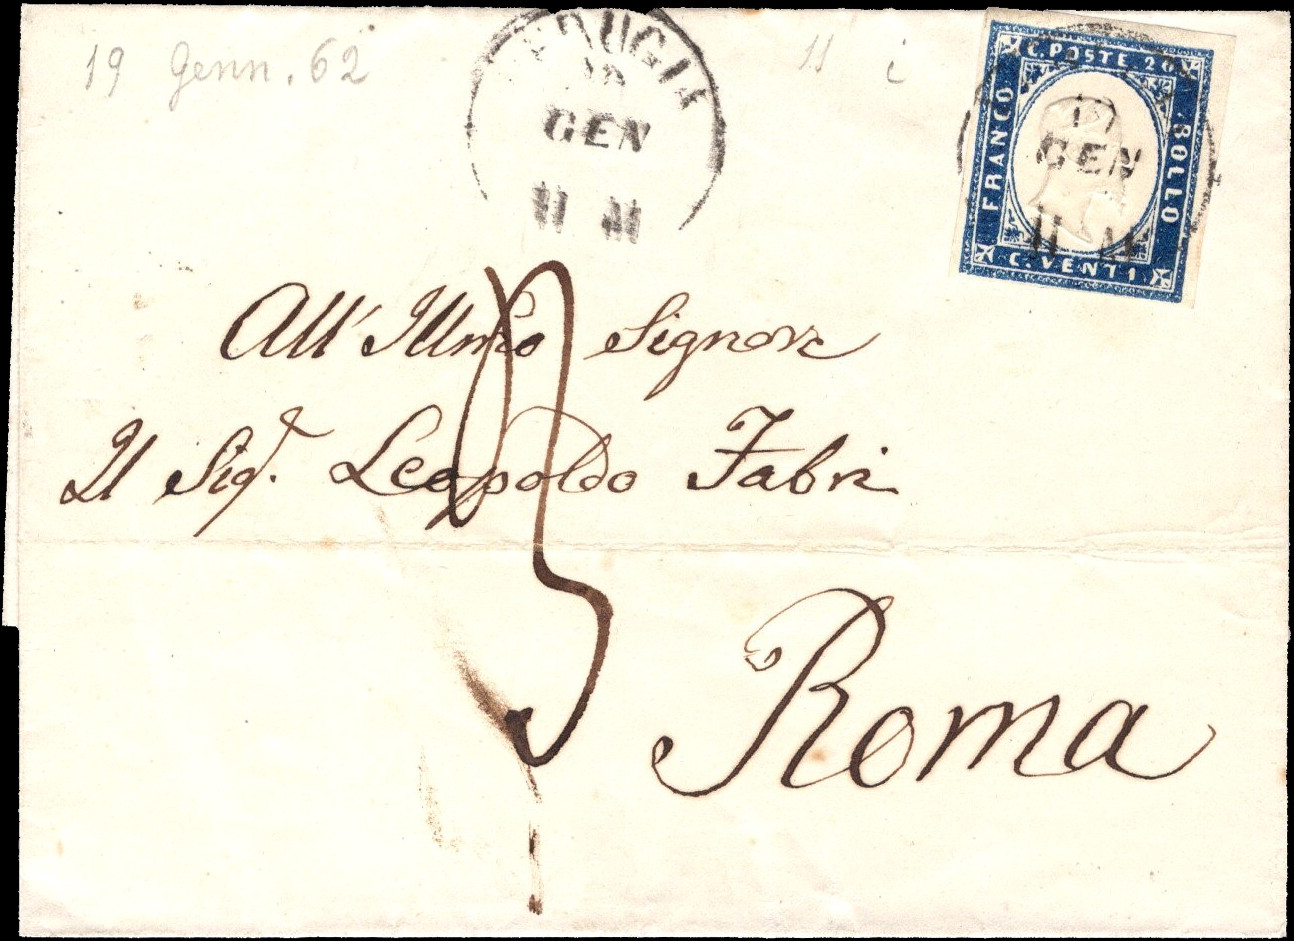 19 Genn. 62
ERUGIA
GEN
11 M
11 i
C. POSTE. 20
FRANCO
BOLLO
C. VENTI
19
GEN
11 M
All' Illmo Signore
Il Sigr. Leopoldo Fabri
3
Roma